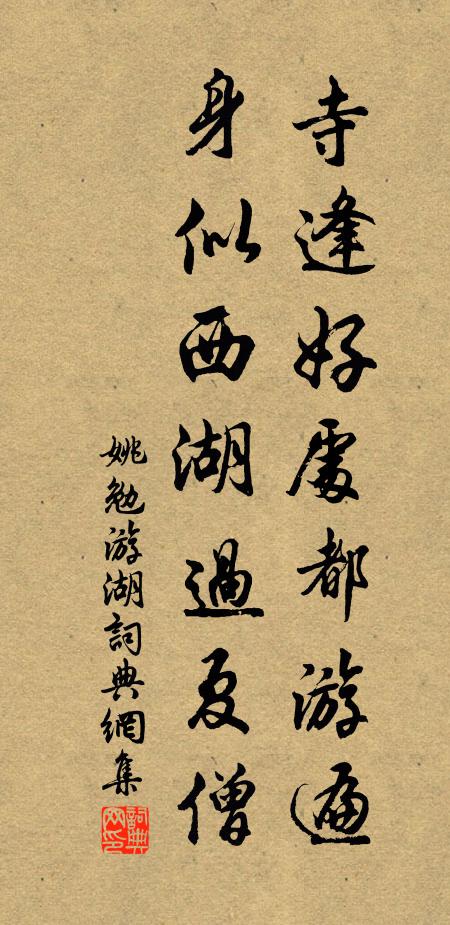 寺逢好處都游遍
身似西湖過夏僧
姚勉游湖詞典網集
詞典网印